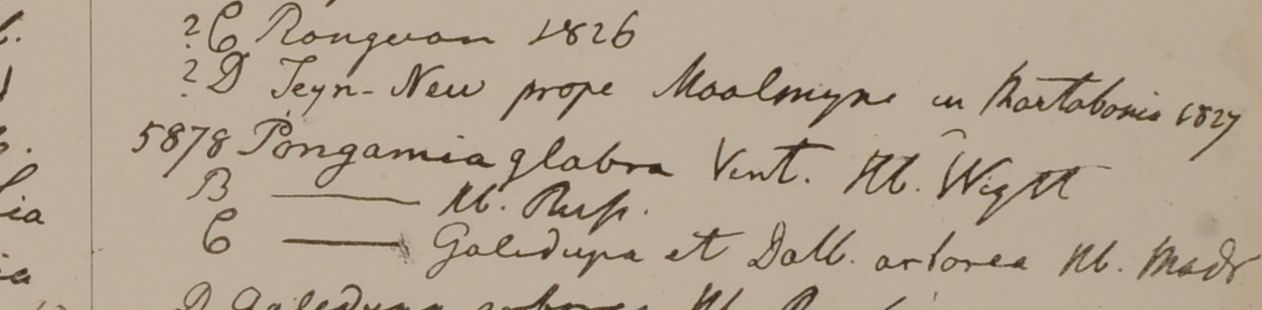 ? C Rongvon 1826
? D Teyn-New prope Moolmyne in Martabania 1827
5878 Pongamia glabra Vent. Hb. Wight
B —— Hb. Russ.
C —— Galedupa et Dalb. arborea Hb. Madr
D Galedupa arborea Hb.